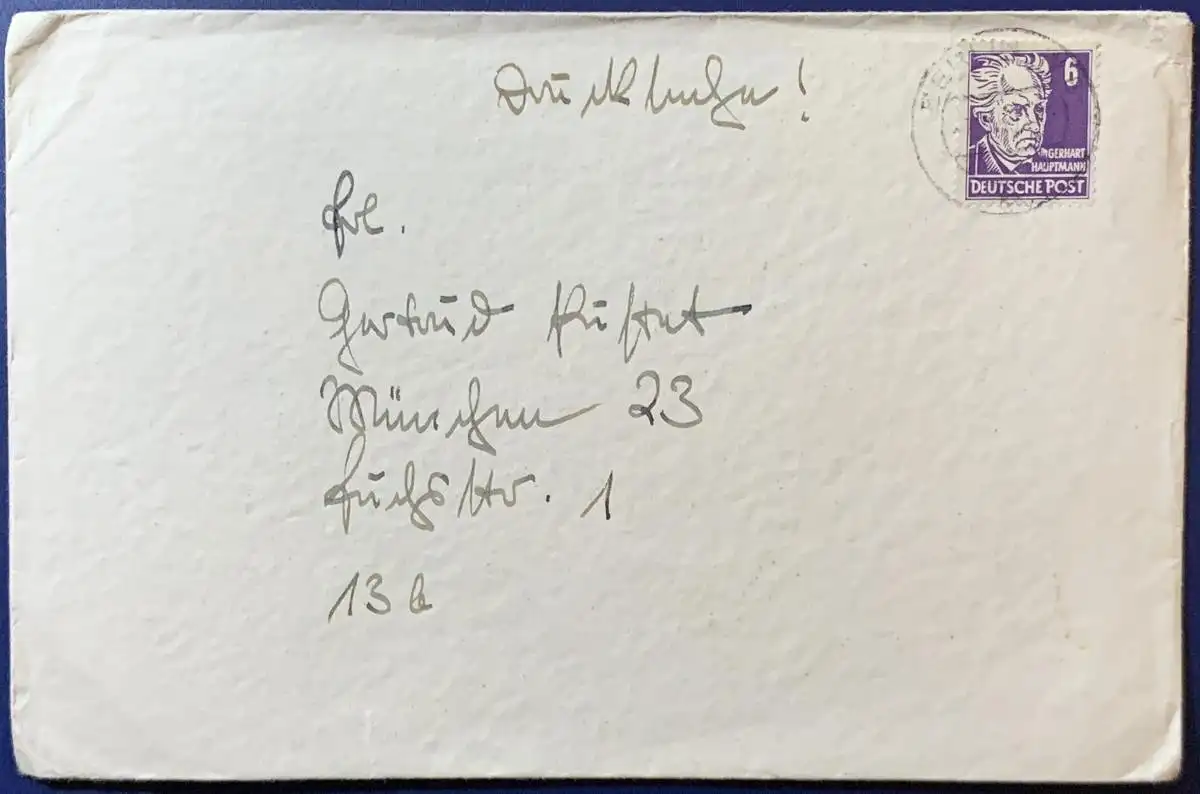 Drucksache!
6
GERHART
HAUPTMANN
DEUTSCHE POST
Frl.
Gertrud
München 23
Fuchsstr. 1
13b